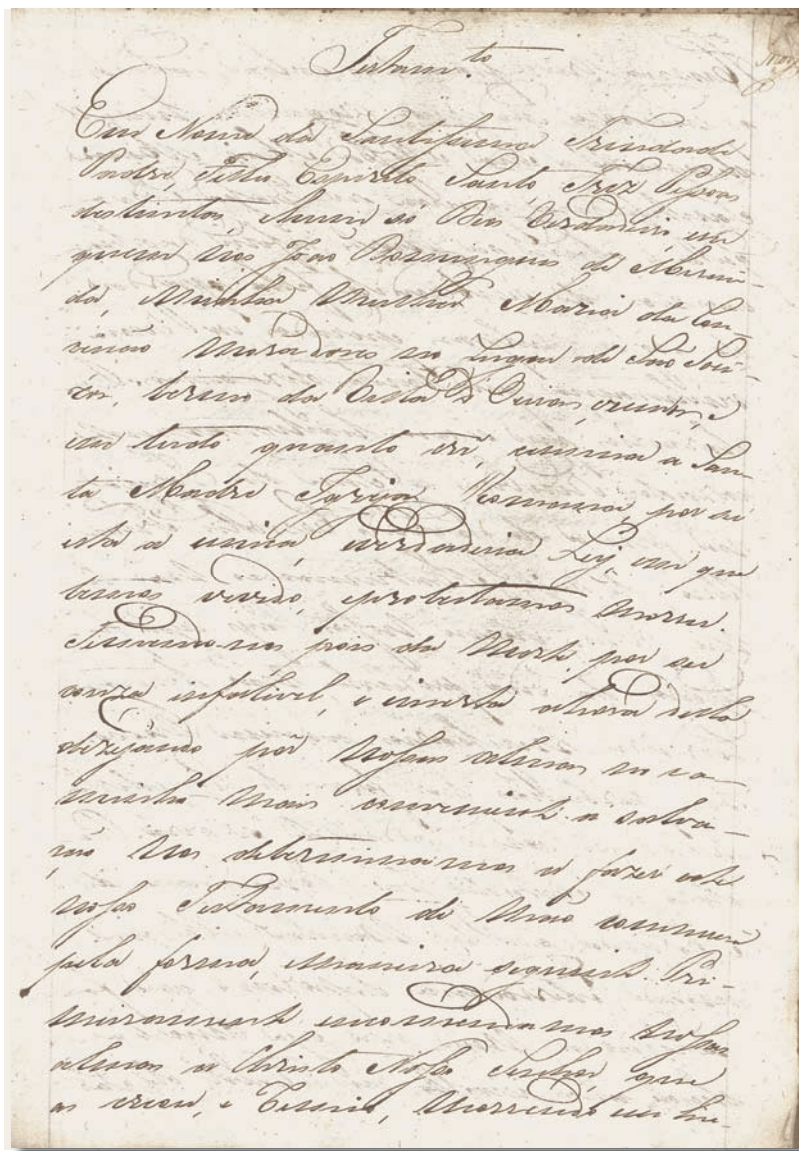 Testam.to
Em Nome da Santissima Trindade
Padre, Filho Espirito Santo, Trez Pessoas
destintas, hum só Deos Verdadeiro, em
quem nos João Domingues de Miran-
da, Minha Mulher Maria da Con-
ceicão Moradores no Lugar de São
termo da Villa de cremos, e
em tudo quanto crê, ensina a San-
ta Madre Igreja Romana, por ser
esta a unica, verdadeira Ley, em que
temos vivido, eprotestamos morrer.
Temendo-nos pois da Morte, por ser
couza infalivel, e incerta ahora della
dezejando pôr Nossas almas no ca-
minho mais conveniente a salva-
ção Nos determinamos a fazer este
nosso Testamento de Mão commum
pela forma, emaneira seguinte. Pri-
meiramente encomendamos Nossas
almas a Christo Nosso Senhor, que
as creou, e Remio, Morrendo em hu-